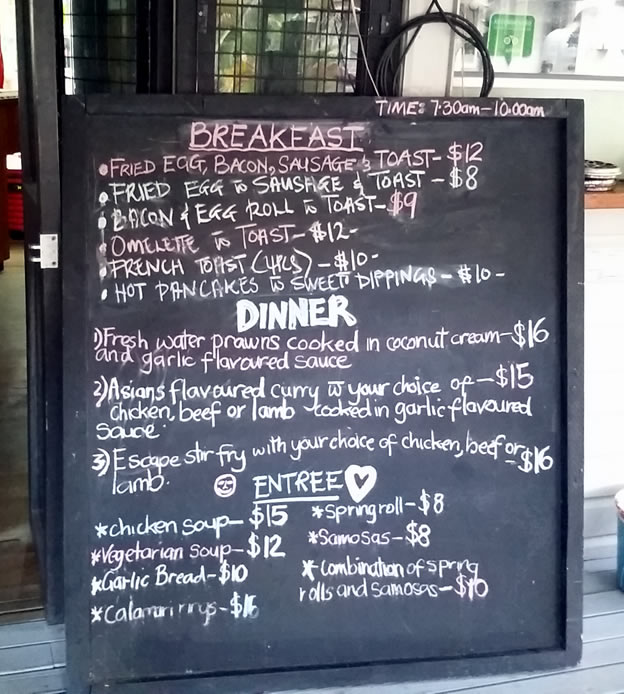 TIME: 7:30am-10:00am
BREAKFAST
•FRIED EGG, BACON, SAUSAGE & TOAST- $12
•FRIED EGG w SAUSAGE & TOAST - $8
•BACON & EGG ROLL w TOAST- $9
•OMELETTE w TOAST- $12-
•FRENCH TOAST (4PCS) - $10-
•HOT PANCAKES w SWEET DIPPINGS - $10-
DINNER
1) Fresh water prawns cooked in coconut cream-$16
and garlic flavoured sauce
2) Asians flavoured curry w your choice of -$15
chicken, beef or lamb cooked in garlic flavoured
sauce.
3) Escape stir fry with your choice of chicken, beef or -$16
lamb.
ENTREE
*chicken soup- $15
*Vegetarian soup- $12
*Garlic Bread- $10
*Calamari rings-
*Spring roll- $8
*Samosas- $8
*combination of spring
rolls and samosas- $10